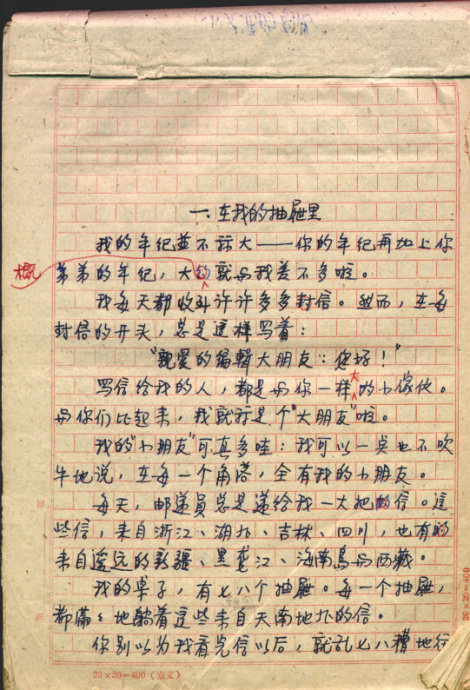 一、在我的抽屉里
我的年纪並不祘大——你的年纪再加上你
弟弟的年纪，大概就与我差不多啦。
我每天都收到许许多多封信。然而，在每
封信的开头，总是这样写着：
“亲爱的编辑大朋友：您好！”
写信给我的人，都是与你一样大的小傢伙。
与你们比起来，我就祘是个“大朋友”啦。
我的“小朋友”可真多哇：我可以一点也不吹
牛地说，在每一个角落，全有我的小朋友。
每天，邮递员总是递给我一大把的信。这
些信，来自浙江、湖北、吉林、四川，也有的
来自遥远的新疆、黑龙江、海南島与西藏。
我的桌子，有七八个抽屉。每一个抽屉，
都满满地躺着这些来自天南地北的信。
你别以为我看完信以后，就乱七八糟地往
20×20=400（京文）
20×20=400